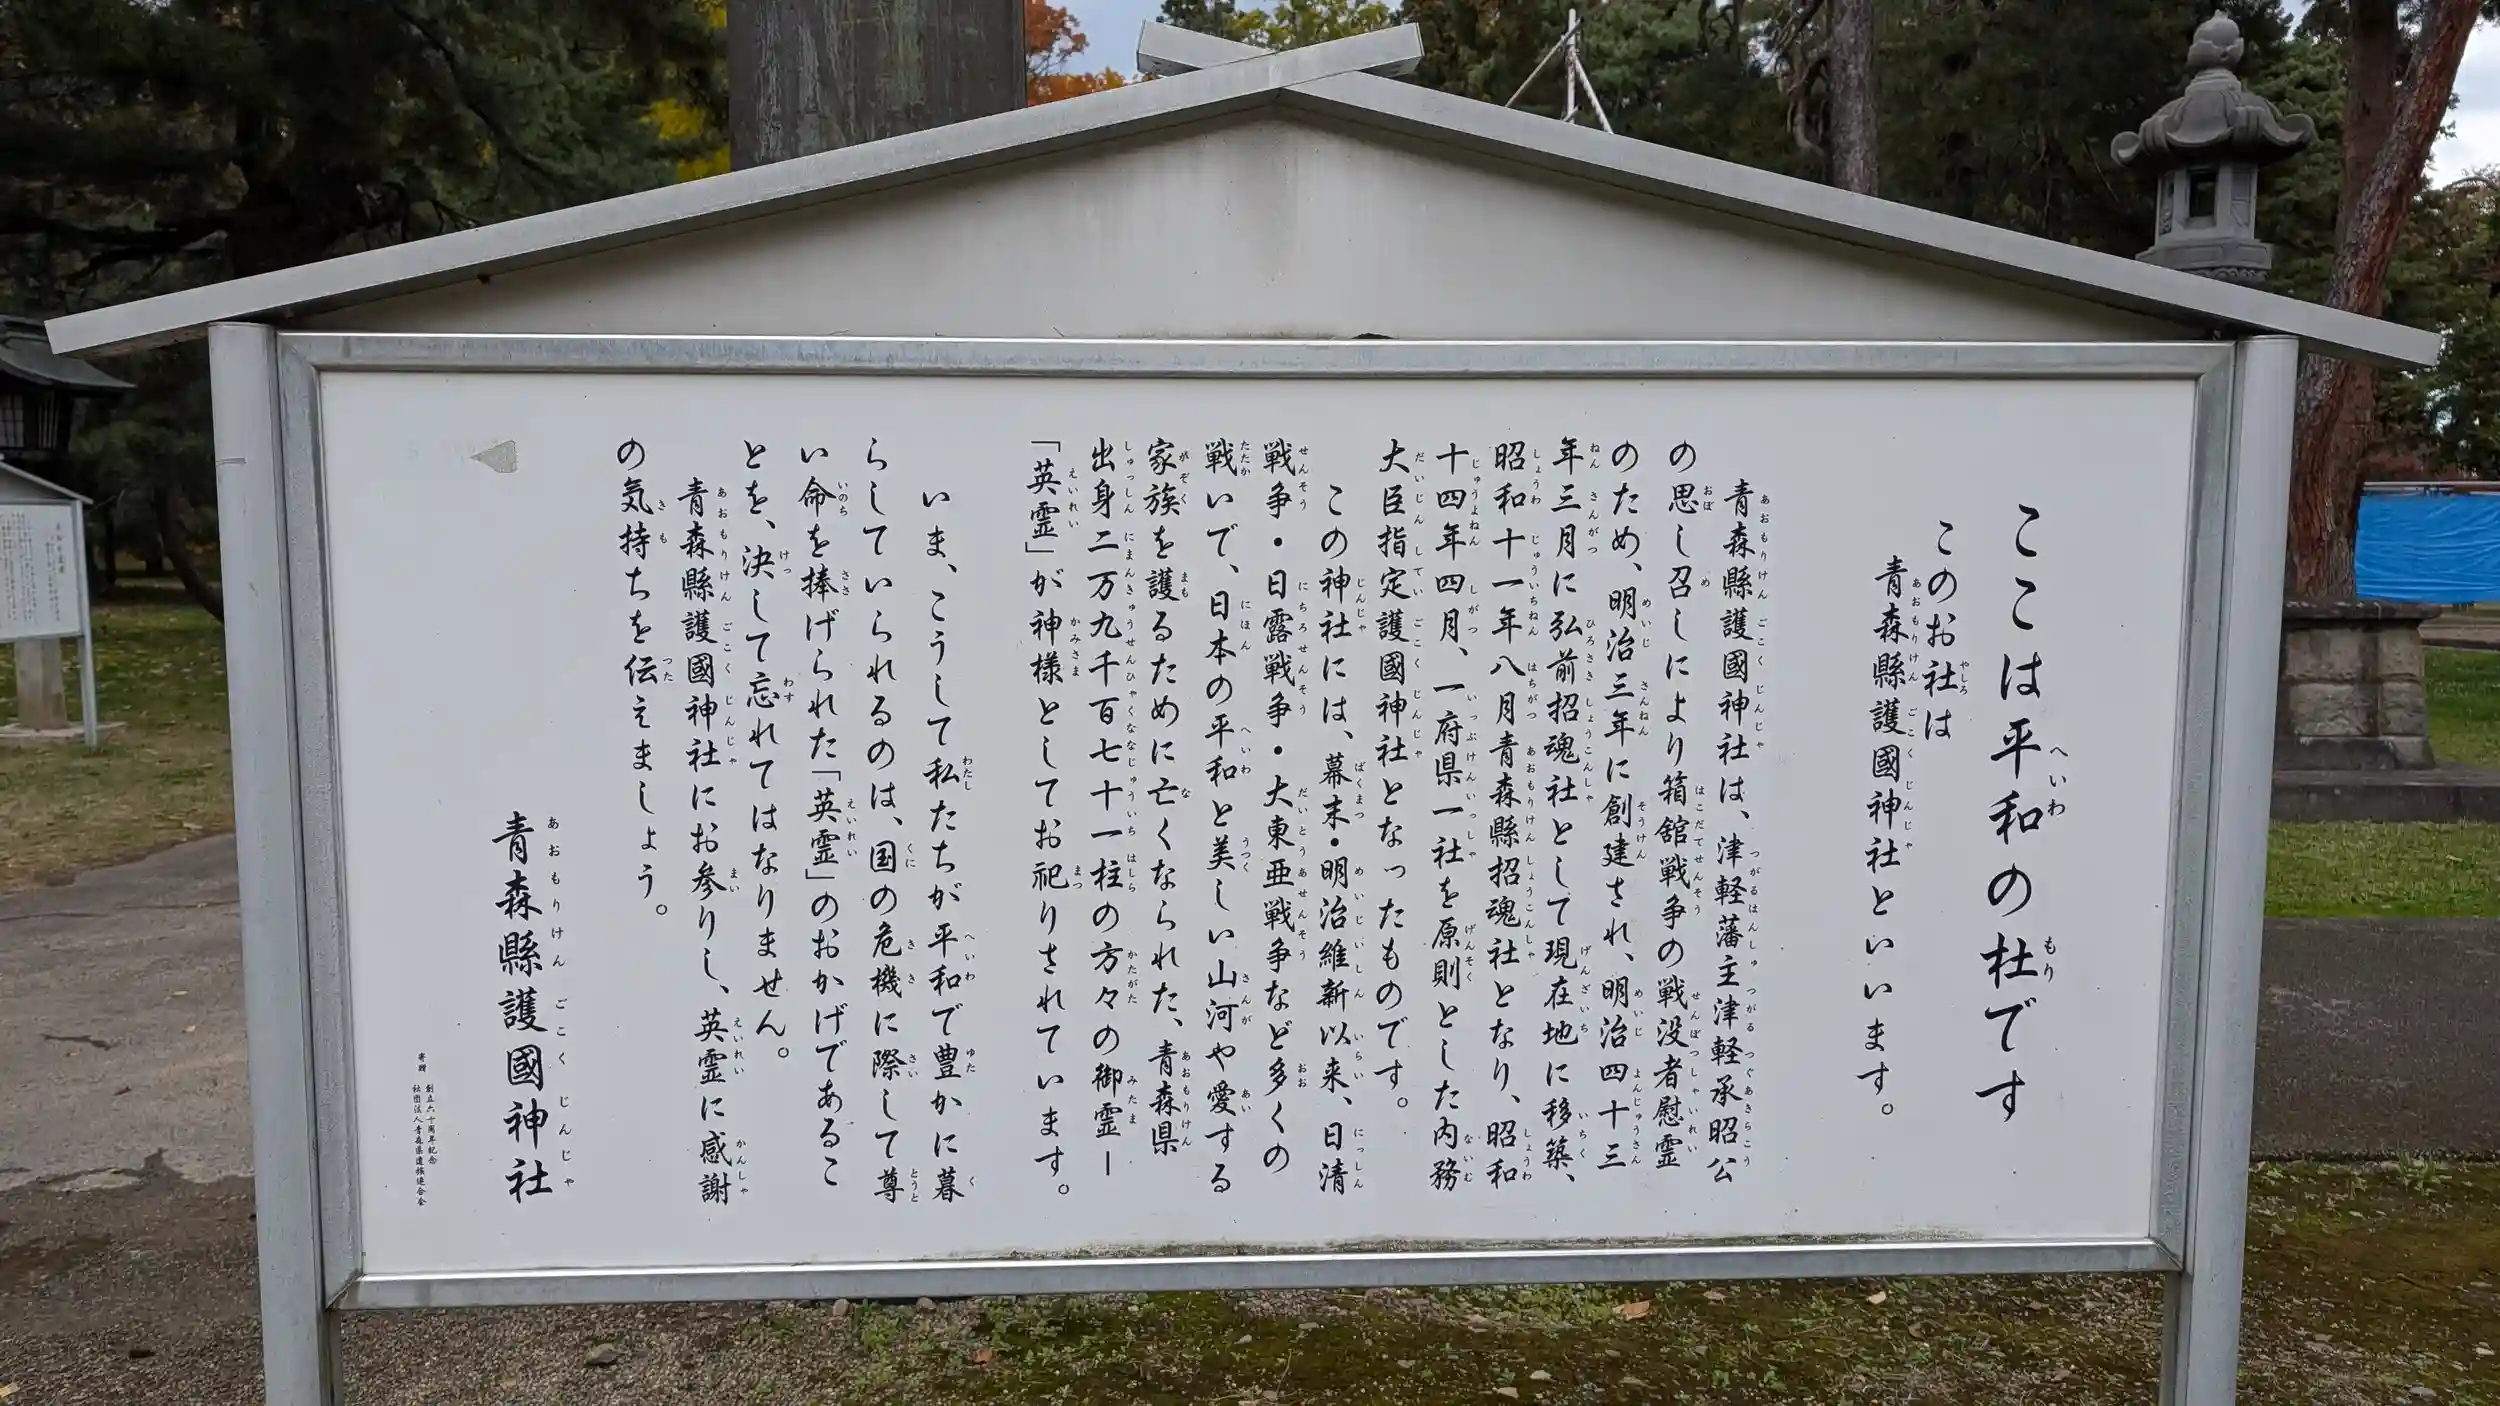 ここは平和の杜です
このお社は
青森縣護國神社といいます。
青森縣護國神社は、津軽藩主津軽承昭公
の思し召しにより箱舘戦争の戦没者慰霊
のため、明治三年に創建され、明治四十三
年三月に弘前招魂社として現在地に移築、
昭和十一年八月青森縣招魂社となり、昭和
十四年四月、一府県一社を原則とした内務
大臣指定護國神社となったものです。
この神社には、幕末・明治維新以来、日清
戦争・日露戦争・大東亜戦争など多くの
戦いで、日本の平和と美しい山河や愛する
家族を護るために亡くなられた、青森県
出身二万九千百七十一柱の方々の御霊ー
「英霊」が神様としてお祀りされています。
いま、こうして私たちが平和で豊かに暮
らしていられるのは、国の危機に際して尊
い命を捧げられた「英霊」のおかげであるこ
とを、決して忘れてはなりません。
青森縣護國神社にお参りし、英霊に感謝
の気持ちを伝えましょう。
青森縣護國神社
寄贈 創立六十周年記念
社団法人青森県遺族連合会